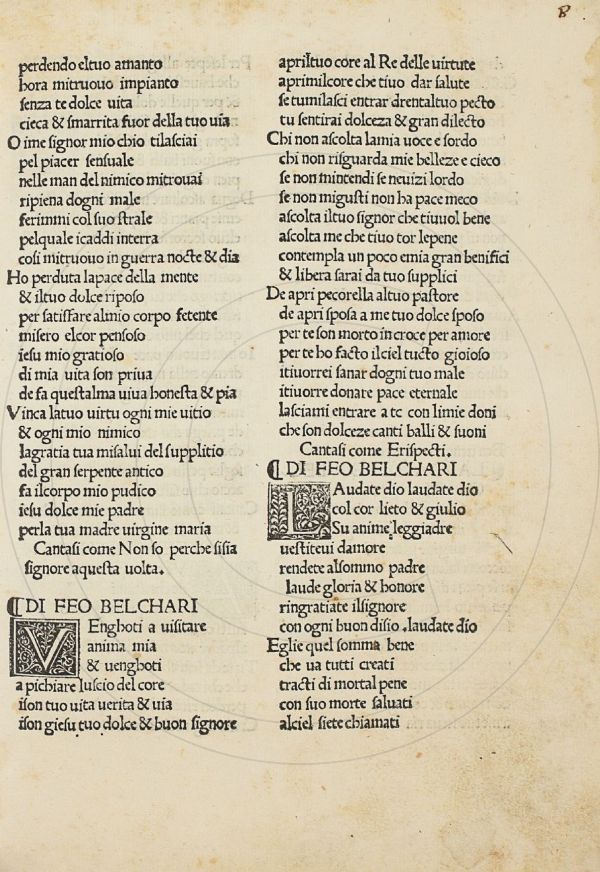 8
perdendo eltuo amanto
hora mitruouo impianto
senza te dolce uita
cieca & smarrita fuor della tuo uia
O ime signor mio chio tilasciai
pel piacer sensuale
nelle man del nimico mitrouai
ripiena dogni male
ferimmi col suo strale
pelquale icaddi interra
cosi mitruouo in guerra nocte & dia
Ho perduta lapace della mente
& iltuo dolce riposo
per satisfare almio corpo fetente
misero elcor pensoso
iesu mio gratioso
di mia uita son priua
de fa questalma uiua honesta & pia
Vinca latuo uirtu ogni mie uitio
& ogni mio nimico
lagratia tua misalui del supplitio
del gran serpente antico
fa ilcorpo mio pudico
iesu dolce mie padre
perla tua madre uirgine maria
Cantasi come Non so perche sisia
signore aquesta uolta.
⸿DI FEO BELCHARI
VEnghoti a uisitare
anima mia
& uenghoti
a pichiare luscio del core
ison tuo uita uerita & uia
ison giesu tuo dolce & buon signore
apriltuo core al Re delle uirtute
aprimilcore che tiuo dar salute
se tumilasci entrar drentaltuo pecto
tu sentirai dolceza & gran dilecto
Chi non ascolta lamia uoce e sordo
chi non risguarda mie belleze e cieco
se non mintendi se neuizi lordo
se non migusti non ha pace meco
ascolta iltuo signor che tiuuol bene
ascolta me che tiuo tor lepene
contempla un poco emia gran benifici
& libera sarai da tuo supplici
De apri pecorella altuo pastore
de apri sposa a me tuo dolce sposo
per te son morto in croce per amore
per te ho facto ilciel tucto gioioso
itiuorrei sanar dogni tuo male
itiuorre donare pace eternale
lasciami entrare a te con limie doni
che son dolceze canti balli & suoni
Cantasi come Erispecti.
⸿DI FEO BELCHARI
LAudate dio laudate dio
col cor lieto & giulio
Su anime leggiadre
uestiteui damore
rendete alsommo padre
laude gloria & honore
ringratiate ilsignore
con ogni buon disio .laudate dio
Eglie quel somma bene
che ua tutti creati
tracti di mortal pene
con suo morte saluati
alciel siete chiamati